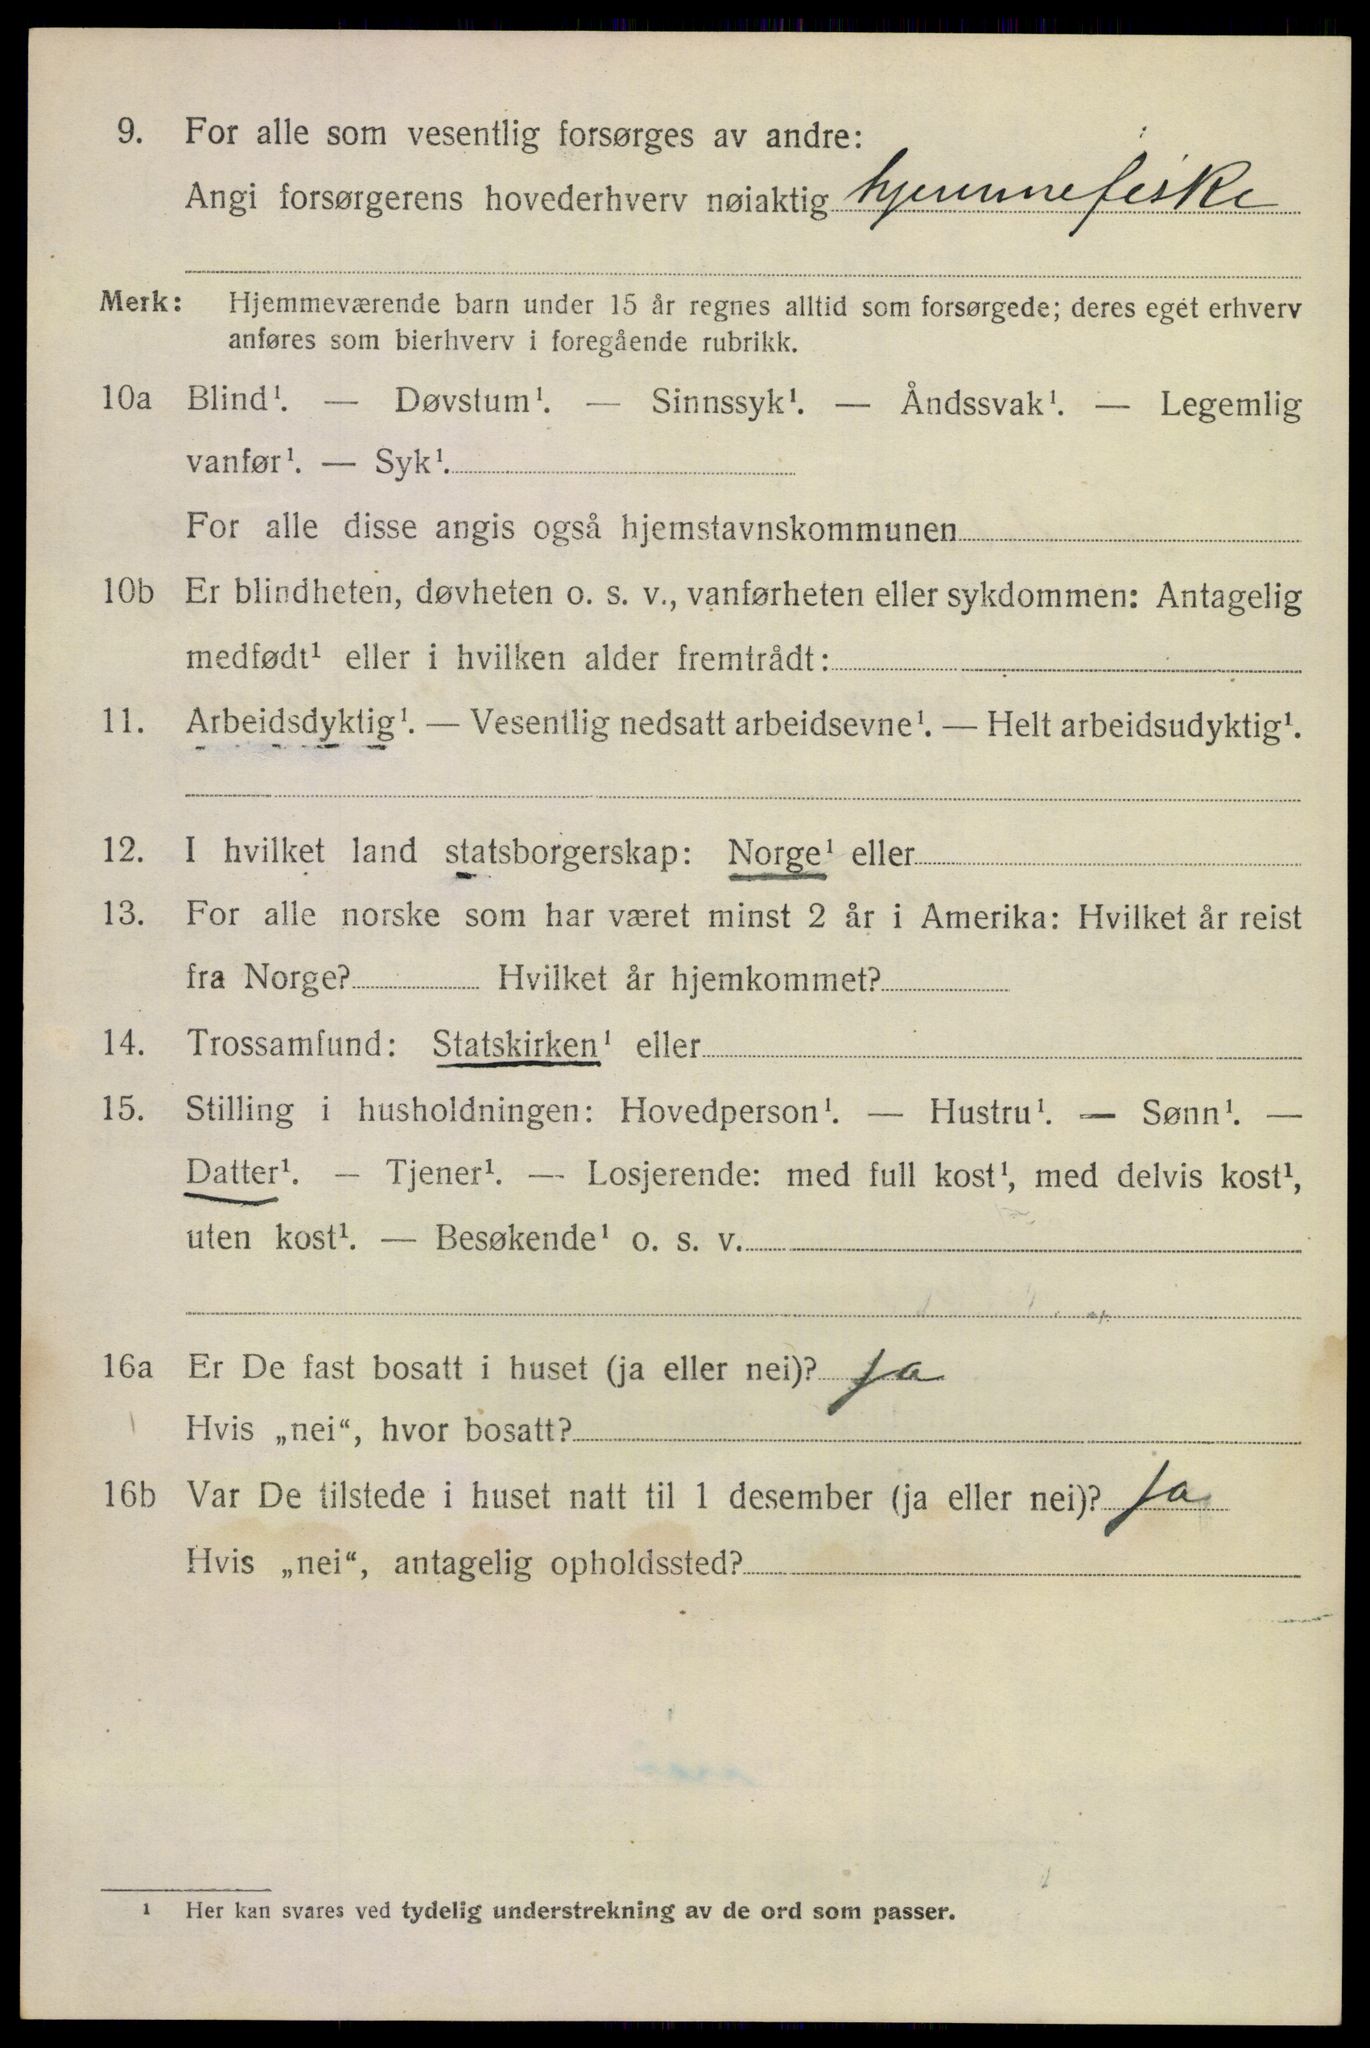 9. For alle som vesentlig forsørges av andre:
Angi forsørgerens hovederhverv nøiaktig hjemmefiske
Merk: Hjemmeværende barn under 15 år regnes alltid som forsørgede; deres eget erhverv
anføres som bierhverv i foregående rubrikk.
10a Blind¹. — Døvstum¹. — Sinnssyk¹. — Åndssvak¹. — Legemlig
vanfør¹. — Syk¹.
For alle disse angis også hjemstavnskommunen
10b Er blindheten, døvheten o. s. v., vanførheten eller sykdommen: Antagelig
medfødt¹ eller i hvilken alder fremtrådt:
11. Arbeidsdyktig¹. — Vesentlig nedsatt arbeidsevne¹. — Helt arbeidsudyktig¹.
12. I hvilket land statsborgerskap: Norge¹ eller
13. For alle norske som har været minst 2 år i Amerika: Hvilket år reist
fra Norge? Hvilket år hjemkommet?
14. Trossamfund: Statskirken¹ eller
15. Stilling i husholdningen: Hovedperson¹. — Hustru¹. — Sønn¹. —
Datter¹. — Tjener¹. — Losjerende: med full kost¹, med delvis kost¹,
uten kost¹. — Besøkende¹ o. s. v.
16a Er De fast bosatt i huset (ja eller nei)? Ja
Hvis „nei“, hvor bosatt?
16b Var De tilstede i huset natt til 1 desember (ja eller nei)? Ja
Hvis „nei“, antagelig opholdssted?
¹ Her kan svares ved tydelig understrekning av de ord som passer.